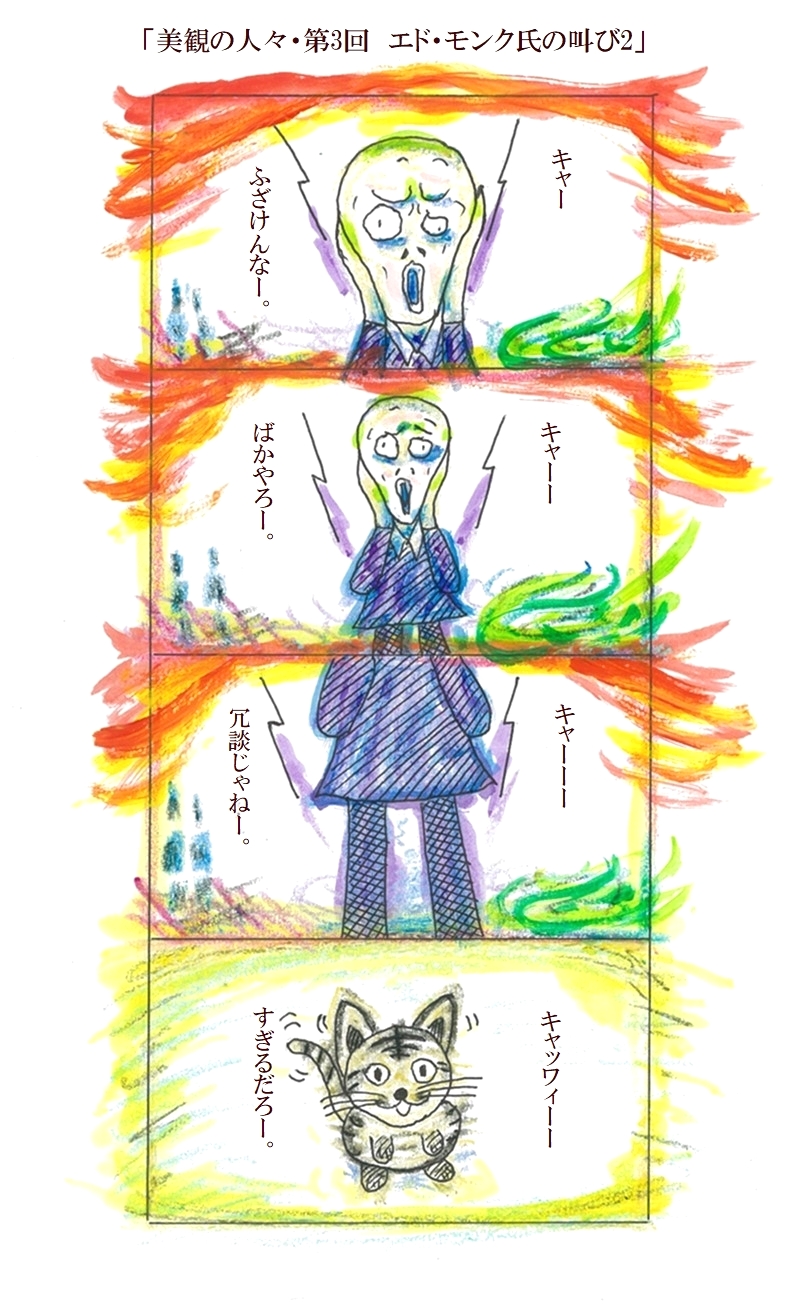 「美観の人々・第3回　エド・モンク氏の叫び2」
キャー
ふざけんなー。
キャーー
ばかやろー。
キャーーー
冗談じゃねー。
キャッツィーー
すぎるだろー。